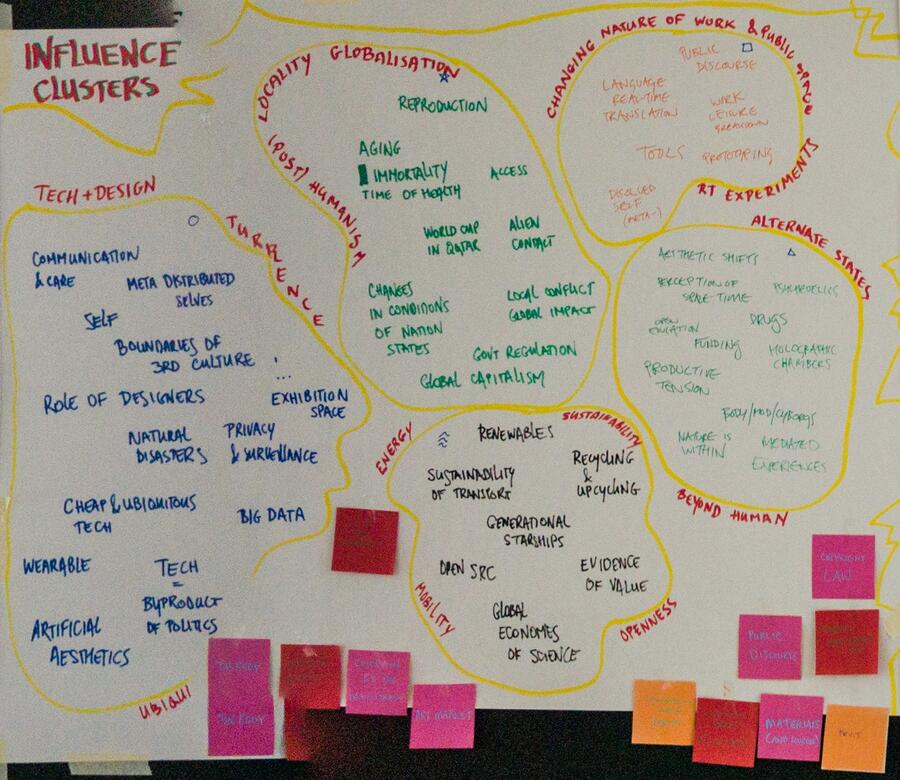 INFLUENCE
CLUSTERS
TECH + DESIGN
TURRENCE
COMMUNICATION
& CARE
META DISTRIBUTED
SELVES
SELF
BOUNDARIES OF
3RD CULTURE
...
ROLE OF DESIGNERS
EXHIBITION
SPACE
NATURAL
DISASTERS
PRIVACY
& SURVEILLANCE
CHEAP & UBIQUITOUS
TECH
BIG DATA
WEARABLE
TECH
=
BYPRODUCT
OF POLITICS
ARTIFICIAL
AESTHETICS
UBIQUI
LOCALITY GLOBALISATION
(POST) HUMANISM
REPRODUCTION
AGING
IMMORTALITY
TIME OF HEALTH
ACCESS
WORLD CUP
IN QATAR
ALIEN
CONTACT
CHANGES
IN CONDITIONS
OF NATION
STATES
LOCAL CONFLICT
GLOBAL IMPACT
GOVT REGULATION
GLOBAL CAPITALISM
CHANGING NATURE OF WORK & PUBLIC SPACE
RT EXPERIMENTS
PUBLIC
DISCOURSE
LANGUAGE
REAL-TIME
TRANSLATION
WORK
LEISURE
BREAKDOWN
TOOLS
PROTOTYPING
SELF
(META-)
ALTERNATE STATES
BEYOND HUMAN
SHIFTS
PERCEPTION OF
SPACE TIME
PSYCHEDELICS
OPEN
EDUCATION
DRUGS
FUNDING
HOLOGRAPHIC
CHAMBERS
PRODUCTIVE
TENSION
BODY/MOD/CYBORGS
NATURE IS
WITHIN
MEDIATED
EXPERIENCES
ENERGY
SUSTAINABILITY
MOBILITY
OPENNESS
RENEWABLES
SUSTAINABILITY
OF TRANSPORT
RECYCLING
&
UPCYCLING
GENERATIONAL
STARSHIPS
OPEN SRC
EVIDENCE
OF VALUE
GLOBAL
ECONOMIES
OF SCIENCE
COPYRIGHT
LAW
PUBLIC
DISCOURSE
ART MARKET
MATERIALS